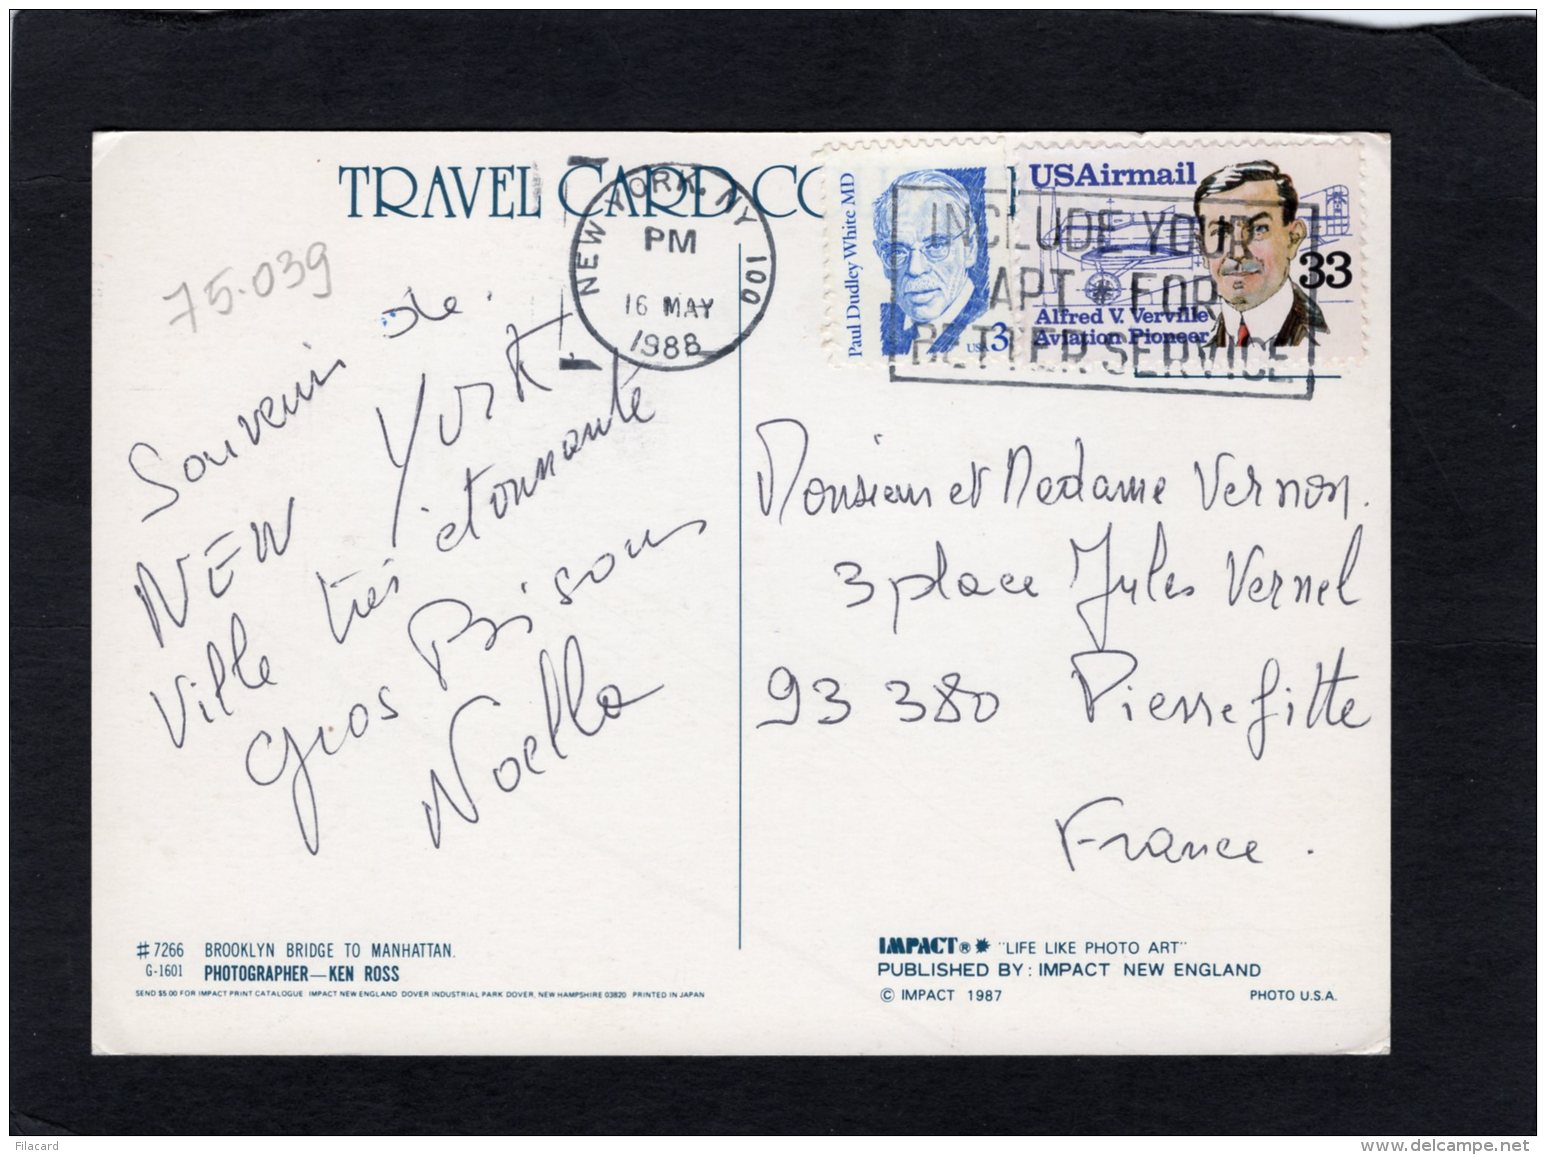 TRAVEL CARD CO
75.039
Souvenir de
NEW York
Ville très étonnante
Gros Bisous
Noella
NEW YORK, NY 100
PM
16 MAY
1988
Paul Dudley White MD
USA 3
USAirmail
33
Alfred V. Verville
Aviation Pioneer
INCLUDE YOUR
APT * FOR
BETTER SERVICE
Monsieur et Madame Vernon.
3 place Jules Vernel
93 380 Pierrefitte
France.
#7266 BROOKLYN BRIDGE TO MANHATTAN.
G-1601 PHOTOGRAPHER—KEN ROSS
SEND $5.00 FOR IMPACT PRINT CATALOGUE IMPACT NEW ENGLAND DOVER INDUSTRIAL PARK DOVER, NEW HAMPSHIRE 03820 PRINTED IN JAPAN
IMPACT® "LIFE LIKE PHOTO ART"
PUBLISHED BY: IMPACT NEW ENGLAND
© IMPACT 1987 PHOTO U.S.A.
Filacard
www.delcampe.net